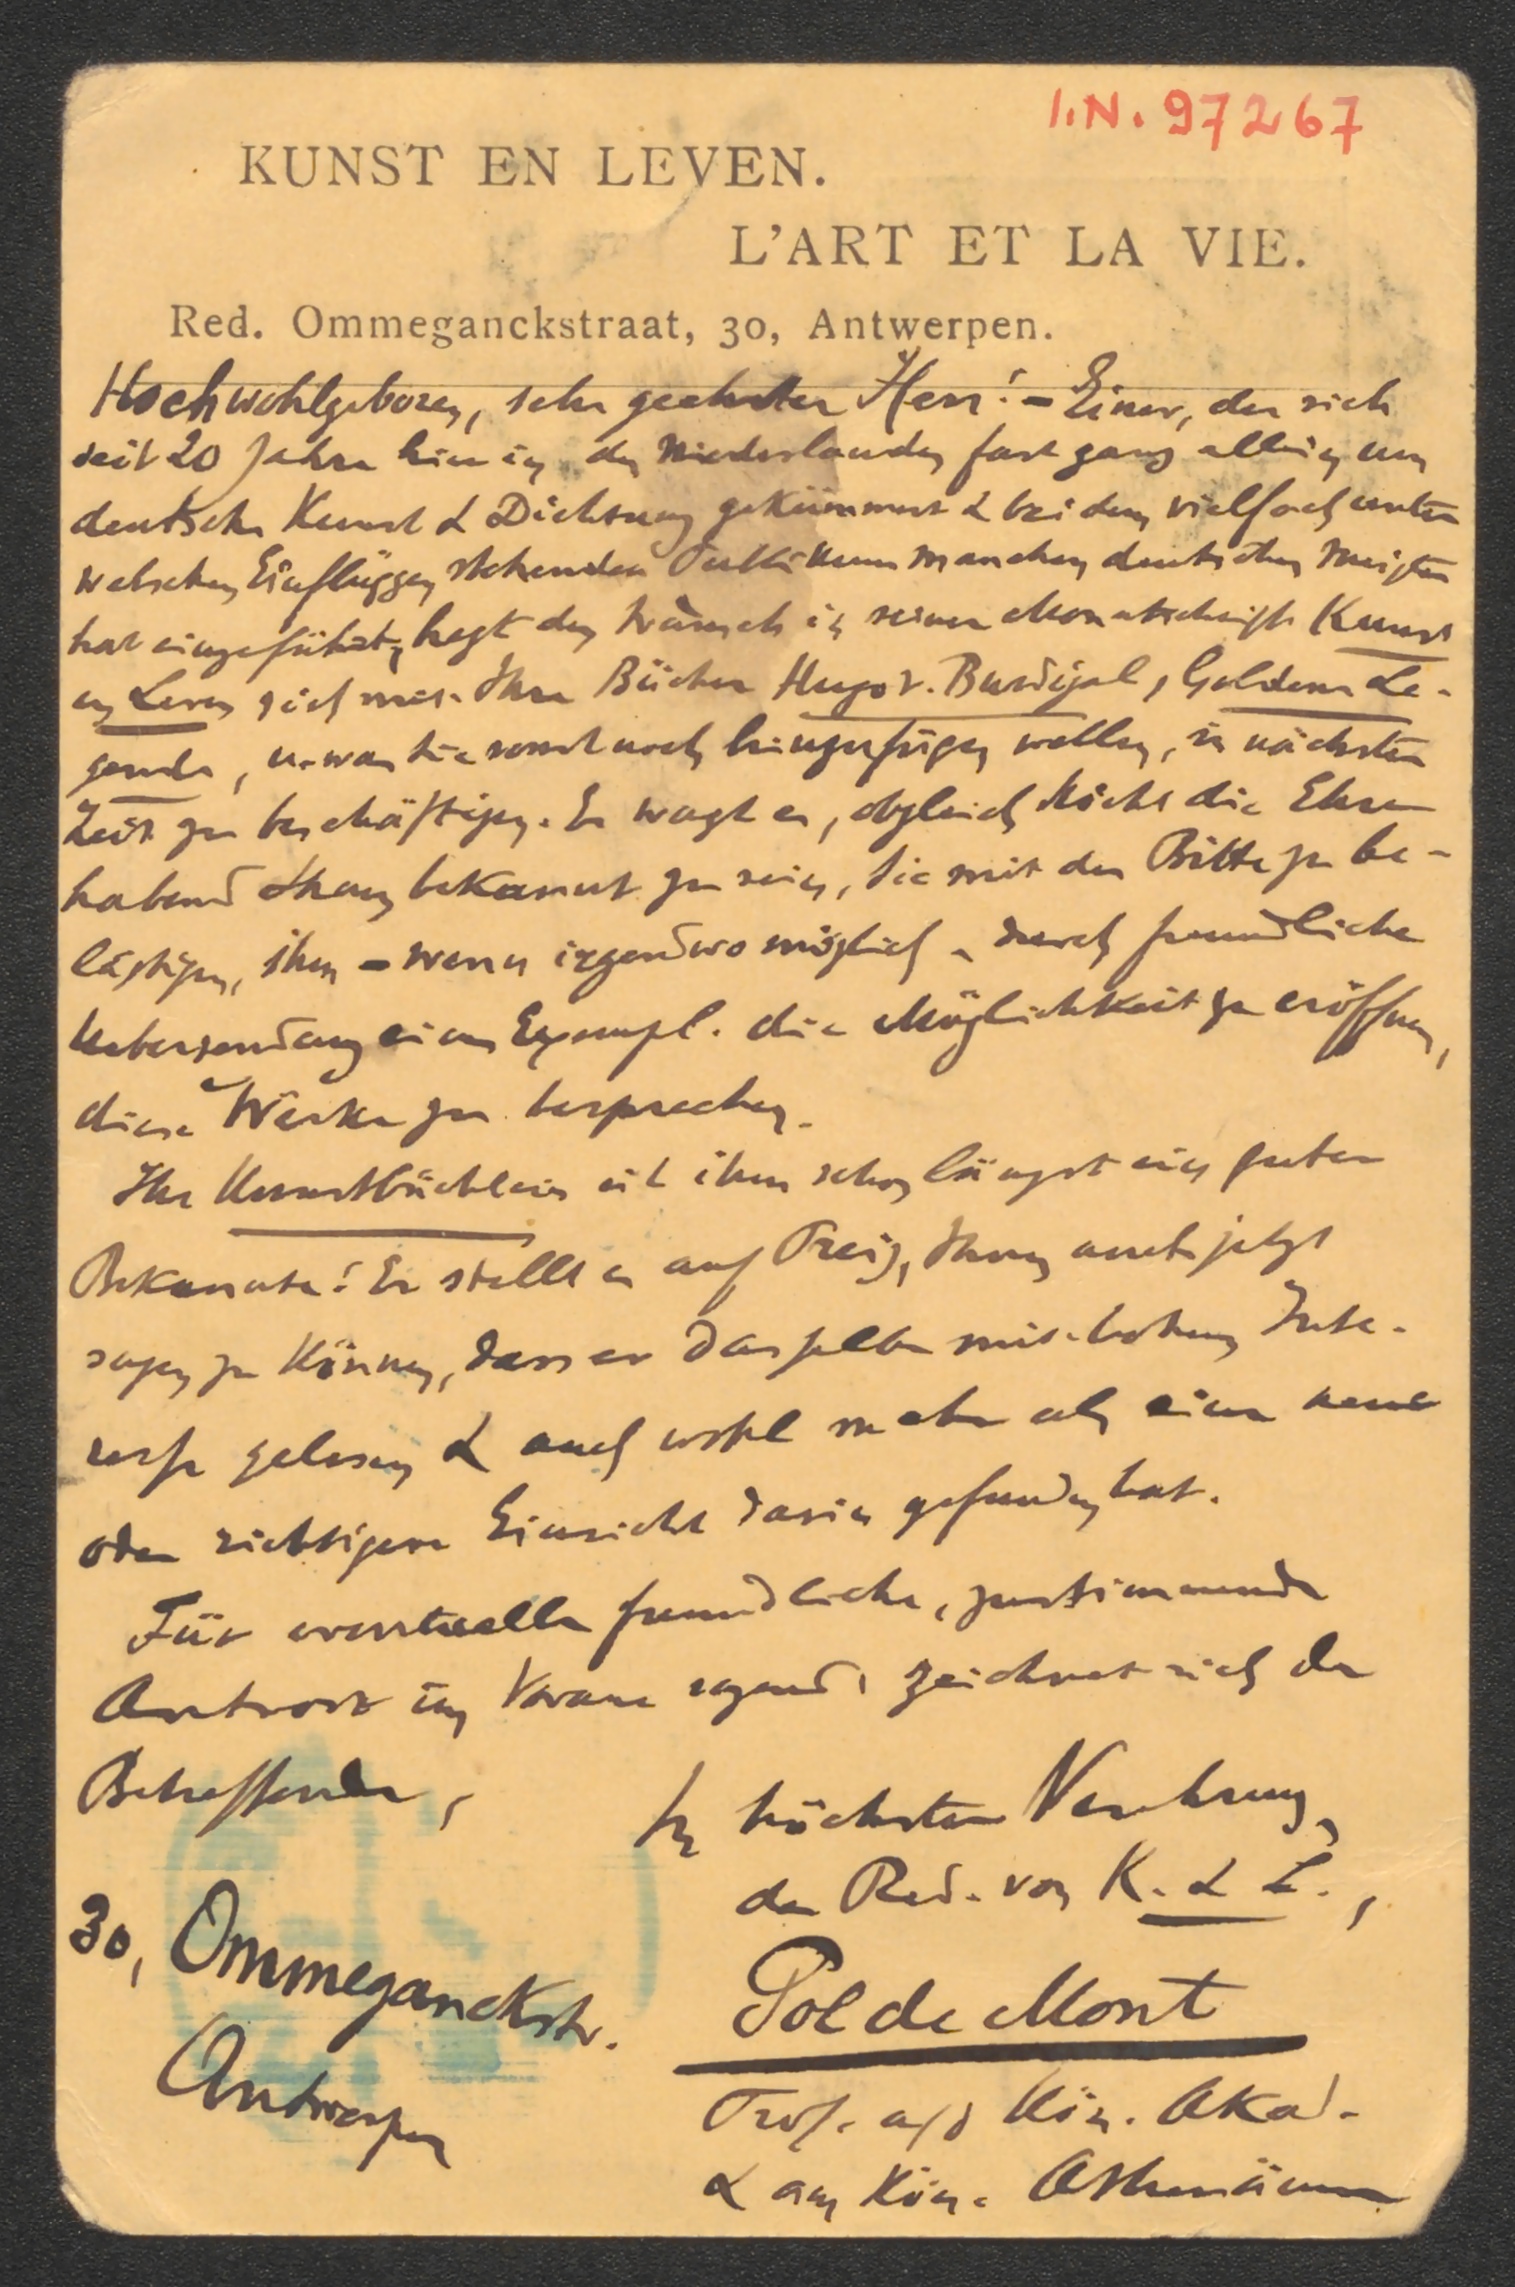 I.N. 97267
KUNST EN LEVEN.
L'ART ET LA VIE.
Red. Ommeganckstraat, 30, Antwerpen.
Hochwohlgeboren, sehr geehrter Herr! – Einer, der sich
seit 20 Jahre hier in den Niederlanden fast ganz allein um
deutsche Kunst & Dichtung gekümmert & bei dem vielfach unter
welschen Einflüssen stehenden Publikum manchen deutschen Meister
hat eingeführt, hegt den Wunsch in seiner Monatschrift Kunst
en Leven sich mit Ihre Bücher Hugo v. Burdigal, Goldene Le-
gende, u. was Sie sonst noch hinzufügen wollen, in nächster
Zeit zu beschäftigen. Er wagt es, obgleich nicht die Ehre
habend Ihnen bekannt zu sein, Sie mit der Bitte zu be-
lästigen, ihm – wenn irgendwo möglich – durch freundliche
Uebersendung eines Exempl. die Möglichkeit zu eröffnen,
diese Werke zu besprechen.
Ihr Kunstbüchlein ist ihm schon längst ein guter
Bekannte! Er stellt es auf Preis, Ihnen auch jetzt
sagen zu können, dass er dasselbe mit hohem Inte-
resse gelesen & auch wohl mehr als eine neue
oder richtigere Einsicht darin gefunden hat.
Für eventuelle freundliche, zustimmende
Antwort im Voraus zeichnet sich der
Betreffende,
In höchster Verehrung,
der Red. von K. & L.,
Pol de Mont
Prof. a/d Kön. Akad.
& am Kön. Athenäum
30, Ommeganckstr.
Antwerpen